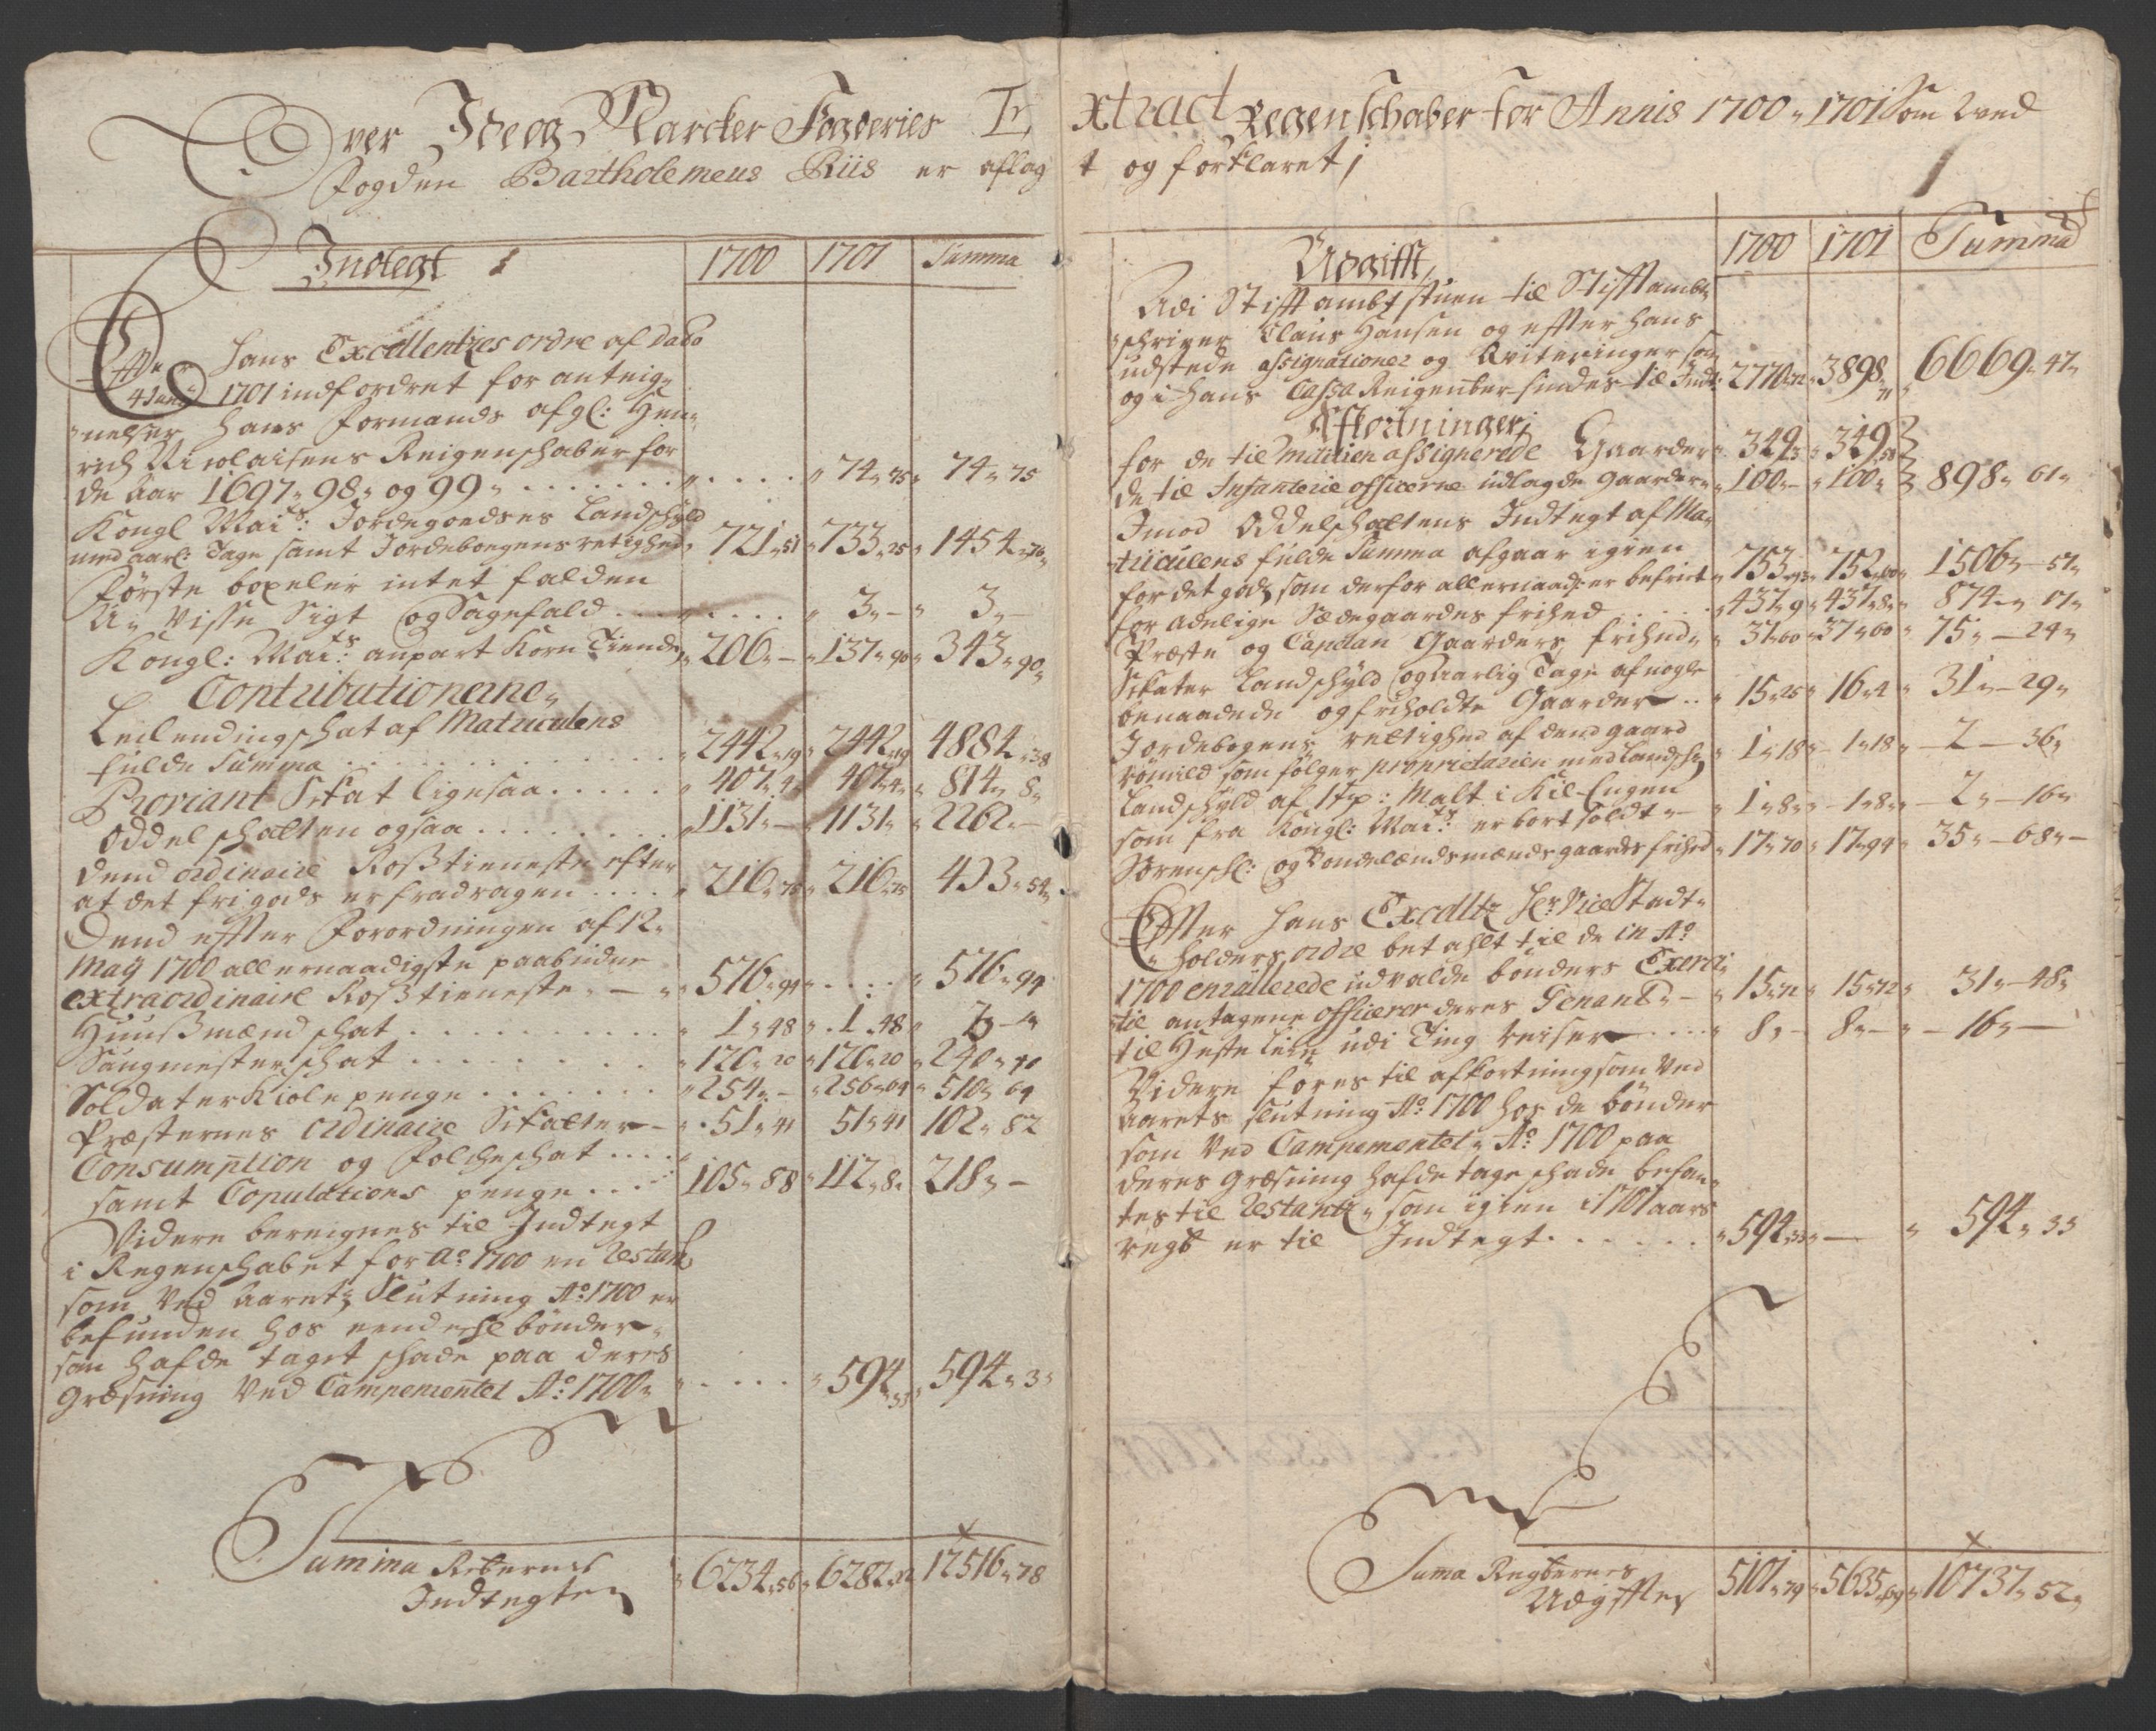 Over Ide og Marcker Fogderies Extract Regenschaber for Annis 1700„ 1701 som ved
Fogden Bartholemeus Riis er aflagt og forklaret
Indtegt 1700 1701 Summa
Effter hans Excellentzes ordre af Dato
4 Junij 1701 indfordret for anteig„
nelser hans formands afgl: Hen„
rich Nicolaisens Reigenschaber for
de Aar 1697„ 98„ og 99„ . . . . . . . „ . . . . „ 74„ 75 „ 74„ 75
Kongl Maits: Jordegoedses Landschyld
med aarl: Tage samt Jordebogens retighed„ 721„ 51 „ 733„ 25 „ 1454„ 76„
Første bopeler intet falden
U„ Visse Sigt og Sagefald . . . „ . . . . „ 3„ – „ 3„ –
Kongl: Maits: anpart Korn Tiende „ 206„ – „ 137„ 90 „ 343„ 90„
Contributionerne„
Leilendingschat af Matriculens
fulde Summa . . . . . . . . „ 2442„ 19 „ 2442„ 19 4884„ 38
Proviant Skat ligesaa . . . . . „ 407„ 4„ 407„ 4„ „ 814„ 8„
Oddelschatten ogsaa . . . . . . . „ 1131„ – „ 1131„ „ 2262„ –
Dend ordinaire Rosstieneste efter
at det frigods er fradragen . . . . „ 216„ 75 „ 216„ 75 433„ 54„
Dend effter Forordningen af 12„
Maÿ 1700 allernaadigste paabudne
extraordinaire Rosstieneste„ – „ 576„ 94 „ . . . . „ 576„ 94
Huussmænd schat . . . . . . . . „ 1„ 48 „ 1„ 48 „ 3„ –
Saugmester schat . . . . . . . „ 120„ 20 „ 120„ 20 „ 240„ 40
Soldater Kiole penge . . . . . . „ 254„ – „ 256„ 64 „ 510„ 64
Præsternes ordinaire Skatter – „ 51„ 41 51„ 41 102„ 82
Consumption og Folcheschat . . . . „
samt Copulations penge . . . 105„ 88 „ 112„ 8„ 218„ –
Videre bereignes til Indtegt
i Regenschabet for Ao: 1700 en Restantz
som Ved Aarets Slutning Ao: 1700 er
befunden hos eendeel bønder„
som hafde taget schade paa deres
Græsning Ved Campementet Ao: 1700„ „ . . . . „ 594„ 33 „ 594„ 3
Summa Regternes
Indtegter 6234„ 56„ 6282„ 22 12516„ 78
Udgifft„ 1700 1701 Summa
Udi Stifftambtstuen til Stifftambt„
schriver Claus Hansen og effter hans
udstede assignationer og Qviteringer som
og i hans Cassa Reigenber findes til Indt: 2770„ 72 „ 3898„ 71 „ 6669„ 47„
Afkortninger
for de til Militien assignerede Gaarder „ 349„ 3 „ 349„ 58
de til Infanterie officerne udlagde gaarder„ „ 100„ – „ 100„ 898„ 61„
Imod Oddelschattens Indtegt af Ma„
triculens fulde Summa afgaar igien
for det gods som derfor allernaadigst er befriet 753„ 93 „ 752„ 60 „ 1506„ – 57„
for adelige Sædegaardes frihed . . . . „ 437„ 9 „ 437„ 8„ „ 874„ 17„
Præste og Capelan Gaarders frihed„ „ 37„ 60 „ 37„ 60 „ 75„ – 24„
Skater Landschyld og Aarlig Tage af nogle
benaadede og friholdte Gaarder . . „ 15„ 25 „ 16„ 4 „ 31„ – 29„
Jordebogens rettighed af dend gaard
Rømild som følger proprietarien med Landsch: „ 1„ 18„ – 1„ 18„ – 2 – 36„
Landschyld af 1 tp: Malt i Kil-Engen
som fra Kongl: Maits: er bortsoldt„ – „ 1„ 8„ – 1„ 8„ – 2„ – 16„
Sorensch: og Bondelændsmænds gaardes frihed „ 17„ 70 „ 17„ 94 „ 35„ – 68„ –
Effter hans Excelltz Hr: Vice Stadt„
holders ordre betahlt til de in Ao
1700 enrullerede udvalde bønders Exerci„
til antagene officerer deres Tenant„ – „ 15„ 72 „ 15„ 72 „ 31„ – 48„
til Heste leie udi Ting reiser . . . . „ 8„ – 8„ – „ – 16„ –
Videre føres til afkortning som Ved
Aarets Slutning Ao: 1700 hos de bønder
som Ved Campementet„ Ao: 1700 paa
deres Græsning hafde tage schade befan„
tes til Restantz„ som igien i 1701 aars
regsk er til Indtegt . . . . . . „ 594„ 33„ – „ 594„ 33
Suma Regternes
Udgiffter 5101„ 79 „ 5635„ 69 „ 10737„ 52„